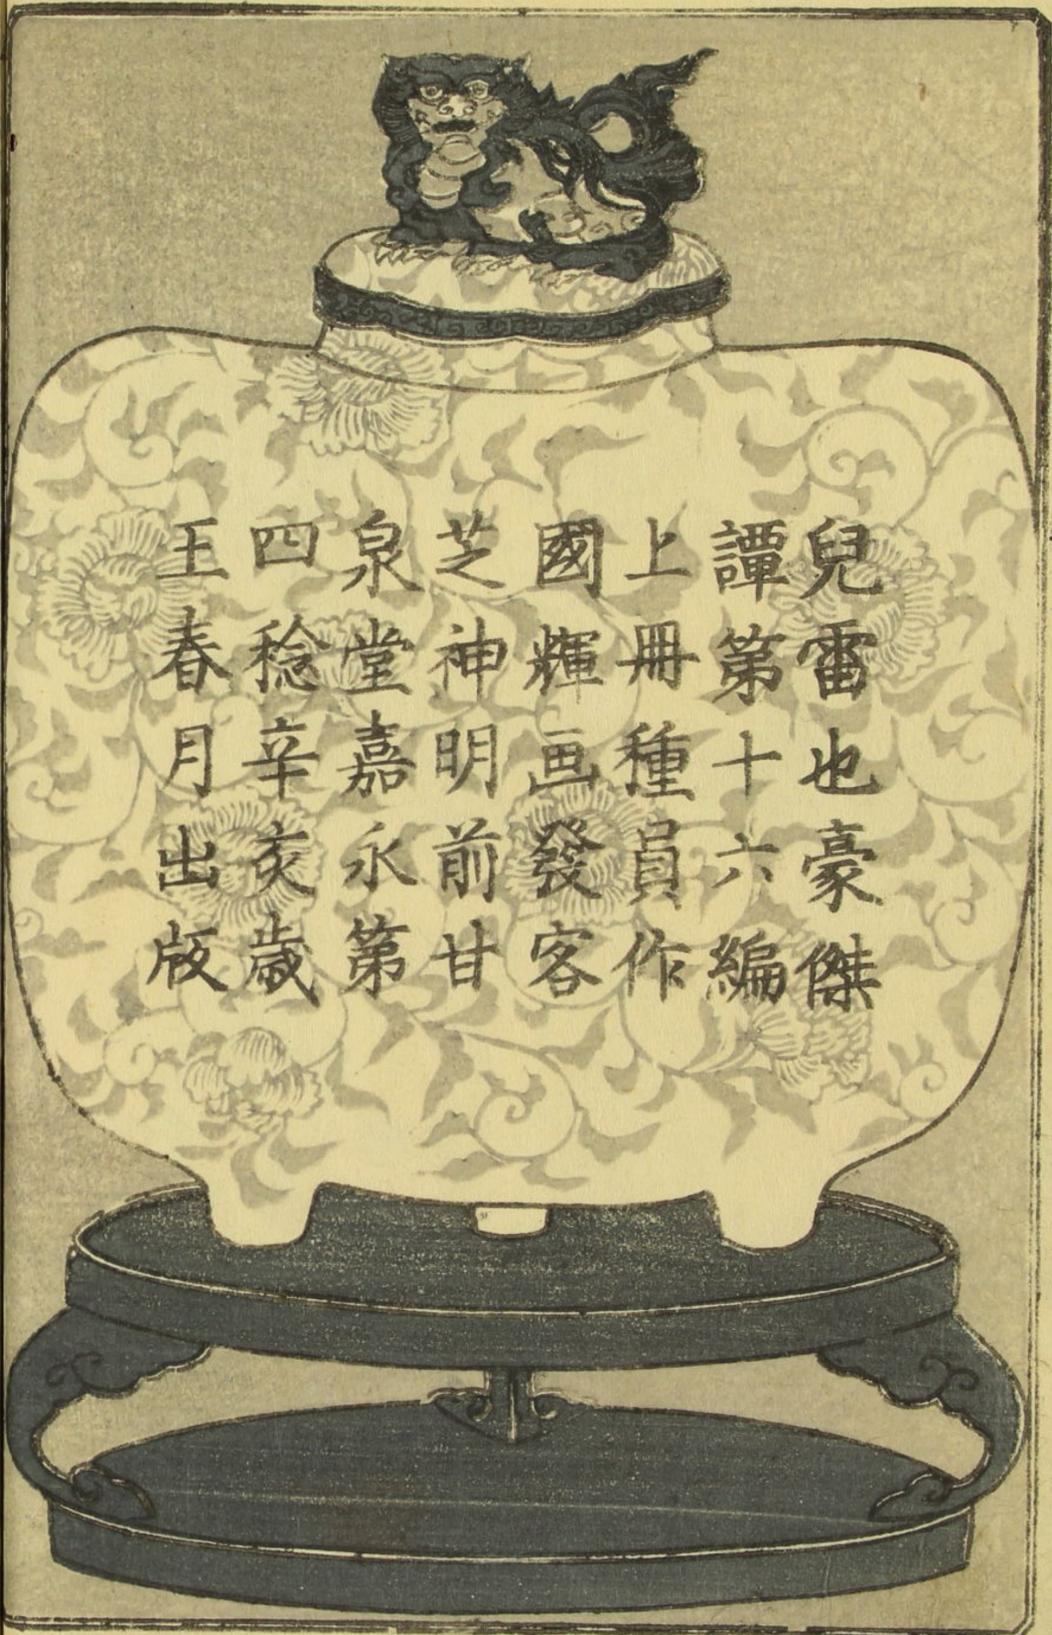 兒雷也豪傑
譚第十六編
上冊種員作
國輝画發客
芝神明前甘
泉堂嘉永第
四稔辛亥歳
王春月出版